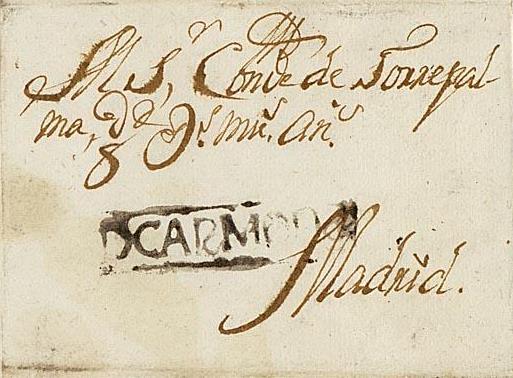 Al Sr, Conde de Torrepal-
ma gde Ds mus. ans.
DCARMONA
Madrid.